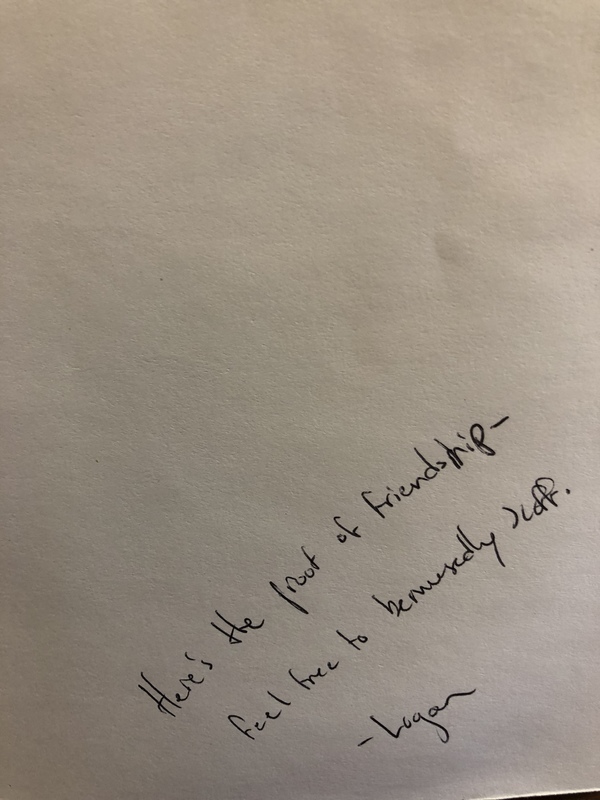 Here's the proof of friendship-
Feel free to bemusedly scoff.
- Logan